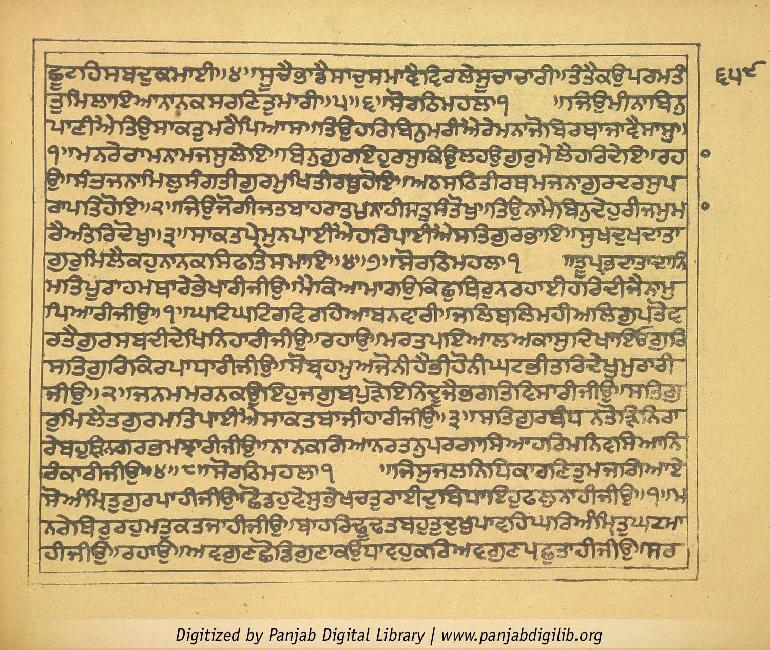 ਛੂਟਹਿਸਬਦੁਕਮਾਈ॥੪॥ਸੂਚੈਭਾਡੈਸਾਚੁਸਮਾਵੈਵਿਰਲੇਸੂਚਾਚਾਰੀ॥ਤੰਤੈਕਉਪਰਮਤੰ
ਤੁਮਿਲਾਇਆਨਾਨਕਸਰਣਿਤੁਮਾਰੀ॥੫॥੬॥ਸੋਰਠਿਮਹਲਾ੧ ॥ਜਿਉਮੀਨਾਬਿਨੁ
ਪਾਣੀਐਤਿਉਸਾਕਤੁਮਰੈਪਿਆਸ॥ਤਿਉਹਰਿਬਿਨੁਮਰੀਐਰੇਮਨਾਜੋਬਿਰਥਾਜਾਵੈਸਾਸੁ॥
੧॥ਮਨਰੇਰਾਮਨਾਮਜਸੁਲੇਇ॥ਬਿਨੁਗੁਰਇਹੁਰਸੁਕਿਉਲਹਉਗੁਰੁਮੇਲੈਹਰਿਦੇਇ॥ਰਹ
ਉ॥ਸੰਤਜਨਾਮਿਲੁਸੰਗਤੀਗੁਰਮੁਖਿਤੀਰਥੁਹੋਇ॥ਅਠਸਠਿਤੀਰਥਮਜਨਾਗੁਰਦਰਸੁਪ
ਰਾਪਤਿਹੋਇ॥੨॥ਜਿਉਜੋਗੀਜਤਬਾਹਰਾਤਪੁਨਾਹੀਸਤੁਸੰਤੋਖੁ॥ਤਿਉਨਾਮੈਬਿਨੁਦੇਹੁਰੀਜਮੁਮ
ਰੈਅੰਤਰਿਦੋਖੁ॥੩॥ਸਾਕਤਪ੍ਰੇਮੁਨਪਾਈਐਹਰਿਪਾਈਐਸਤਿਗੁਰਭਾਇ॥ਸੁਖਦੁਖਦਾਤਾ
ਗੁਰੁਮਿਲੈਕਹੁਨਾਨਕਸਿਫਤਿਸਮਾਇ॥੪॥੭॥ਸੋਰਠਿਮਹਲਾ੧ ॥ਤੂਪ੍ਰਭਦਾਤਾਦਾਨਿ
ਮਤਿਪੂਰਾਹਮਥਾਰੇਭੇਖਾਰੀਜੀਉ॥ਮੈਕਿਆਮਾਗਉਕਿਛੁਥਿਰੁਨਰਹਾਈਹਰਿਦੀਜੈਨਾਮੁ
ਪਿਆਰੀਜੀਉ॥੧॥ਘਟਿਘਟਿਰਵਿਰਹਿਆਬਨਵਾਰੀ॥ਜਲਿਥਲਿਮਹੀਅਲਿਗੁਪਤੋਵ
ਰਤੈਗੁਰਸਬਦੀਦੇਖਿਨਿਹਾਰੀਜੀਉ॥ਰਹਾਉ॥ਮਰਤਪਇਆਲਅਕਾਸੁਦਿਖਾਇਓਗੁਰਿ
ਸਤਿਗੁਰਿਕਿਰਪਾਧਾਰੀਜੀਉ॥ਸੋਬ੍ਰਹਮੁਅਜੋਨੀਹੈਭੀਹੋਨੀਘਟਭੀਤਰਿਦੇਖੁਮੁਰਾਰੀ
ਜੀਉ॥੨॥ਜਨਮਮਰਨਕਉਇਹੁਜਗੁਬਪੁੜੋਇਨਿਦੂਜੈਭਗਤਿਵਿਸਾਰੀਜੀਉ॥ਸਤਿਗੁ
ਰੁਮਿਲੈਤਗੁਰਮਤਿਪਾਈਐਸਾਕਤਬਾਜੀਹਾਰੀਜੀਉ॥੩॥ਸਤਿਗੁਰਬੰਧਨਤੋੜਿਨਿਰਾ
ਰੇਬਹੁੜਿਨਗਰਭਮਝਾਰੀਜੀਉ॥ਨਾਨਕਗਿਆਨਰਤਨੁਪਰਗਾਸਿਆਹਰਿਮਨਿਵਸਿਆਨਿ
ਰੰਕਾਰੀਜੀਉ॥੪॥੮॥ਸੋਰਠਿਮਹਲਾ੧ ॥ਜਿਸੁਜਲਨਿਧਿਕਾਰਣਿਤੁਮਜਗਿਆਏ
ਸੋਅੰਮ੍ਰਿਤੁਗੁਰਪਾਹੀਜੀਉ॥ਛੋਡਹੁਵੇਸੁਭੇਖਚਤੁਰਾਈਦੁਬਿਧਾਇਹੁਫਲੁਨਾਹੀਜੀਉ॥੧॥ਮ
ਨਰੇਥਿਰੁਰਹੁਮਤੁਕਤਜਾਹੀਜੀਉ॥ਬਾਹਰਿਢੂਢਤਬਹੁਤੁਦੁਖੁਪਾਵਹਿਘਰਿਅੰਮ੍ਰਿਤੁਘਟਮਾ
ਹੀਜੀਉ॥ਰਹਾਉ॥ਅਵਗੁਣਛੋਡਿਗੁਣਾਕਉਧਾਵਹੁਕਰਿਅਵਗੁਣਪਛੁਤਾਹੀਜੀਉ॥ਸਰ
੬੫੯
Digitized by Panjab Digital Library | www.panjabdigilib.org